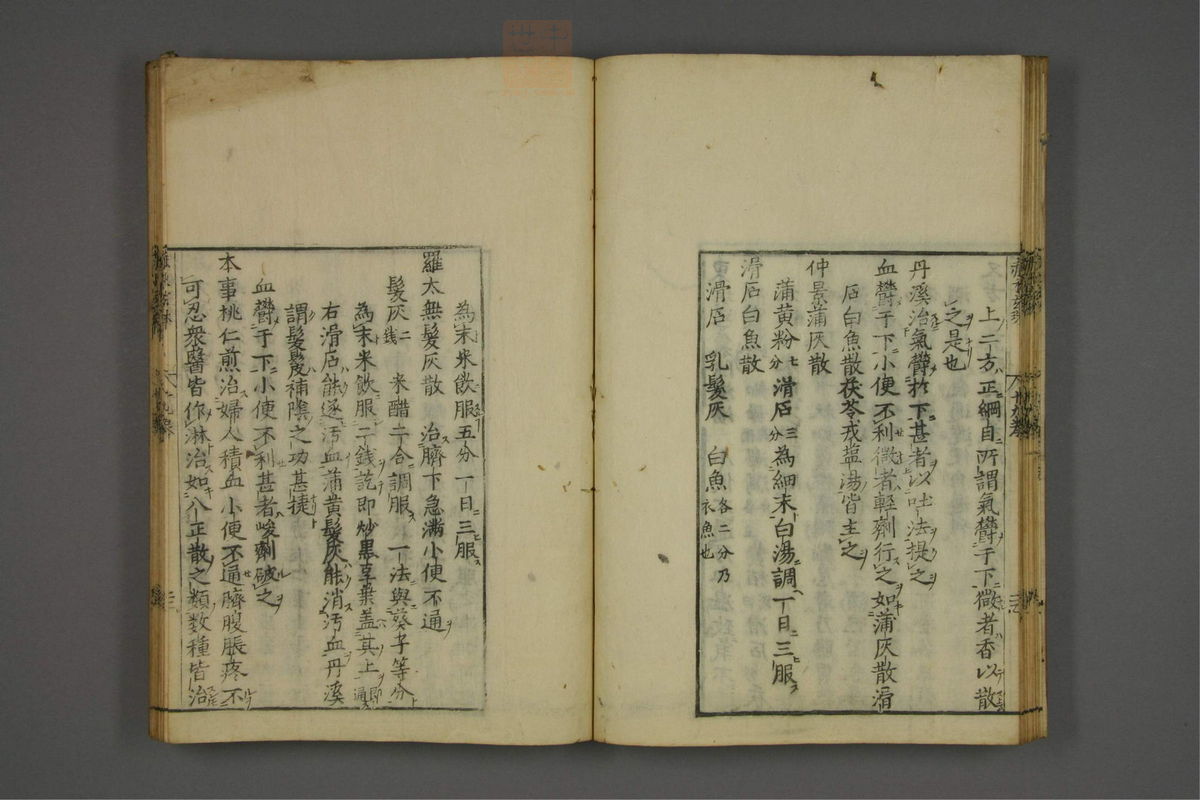 上二方正綱目所謂氣欝于下微者香以散
之是也
丹溪治氣欝於下甚者以吐法提之
血欝于下小便不利微者輕劑行之如蒲灰散滑
石白魚散茯苓戎塩湯皆主之
仲景蒲灰散
蒲黄粉七分滑石三分為細末白湯調丁日三服
滑石白魚散
滑石 乳髮灰 白魚各二分乃衣魚也
為末米飲服五分丁日三服
羅太無髮灰散 治臍下急滿小便不通
髮灰二錢 米醋二合調服 一法與葵子等分
為末米飲服二錢訖即炒黒豆葉盖其上即通
右滑石能逐汚血蒲黄髮灰能消汚血丹溪
謂髮補陰之功甚捷
血欝于下小便不利甚者峻劑破之
本事桃仁煎治婦人積血小便不通臍腹脹疼不
可忍衆醫皆作淋治如八正散之類数種皆治